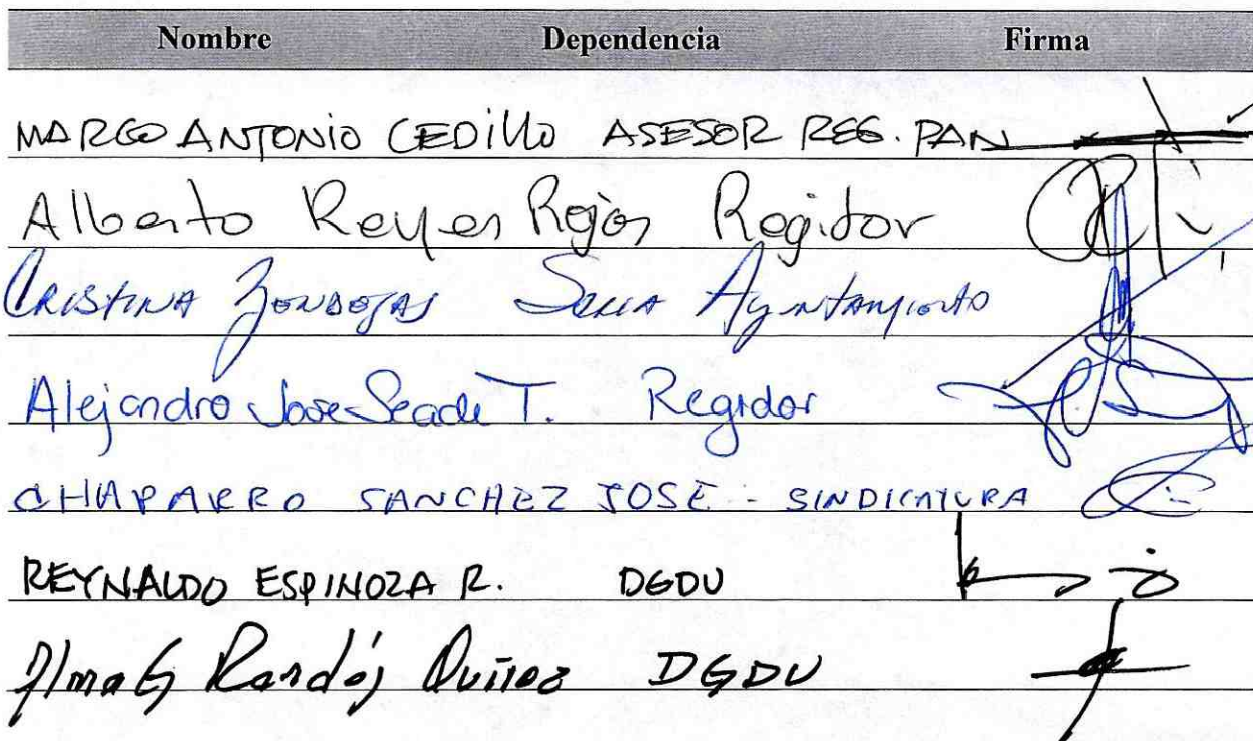 Nombre Dependencia Firma
MARCO ANTONIO CEDILLO ASESOR REG. PAN
Alberto Reyes Rojas Regidor
CRISTINA Ayuntamiento
Alejandro Jose Seade T. Regidor
CHAPARRO SANCHEZ JOSE - SINDICATURA
REYNALDO ESPINOZA R. DGDU
DGDU